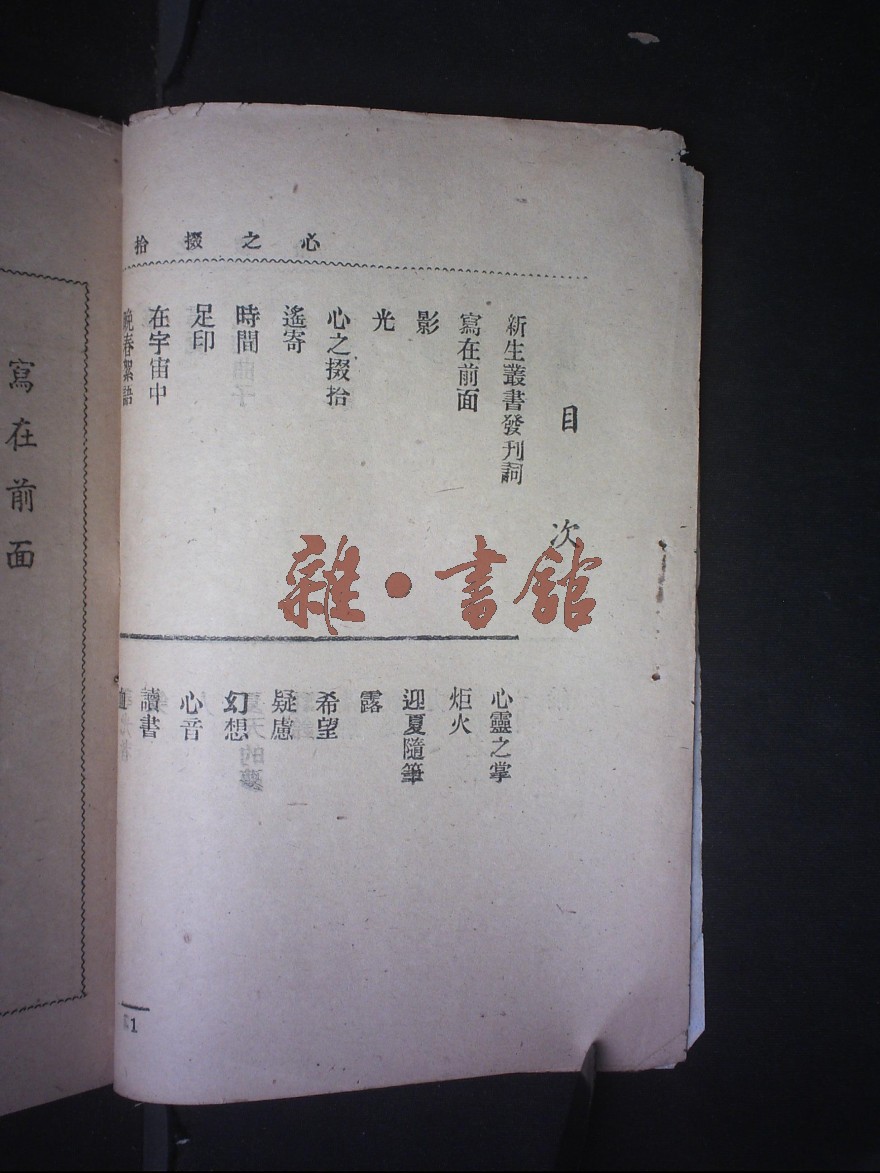 心之掇拾
目次
新生叢書發刊詞
寫在前面
影
光
心之掇拾
遙寄
時間
足印
在宇宙中
晚春絮語
心靈之掌
炬火
迎夏隨筆
露
希望
疑慮
幻想
心音
讀書
1
寫在前面
雜·書館